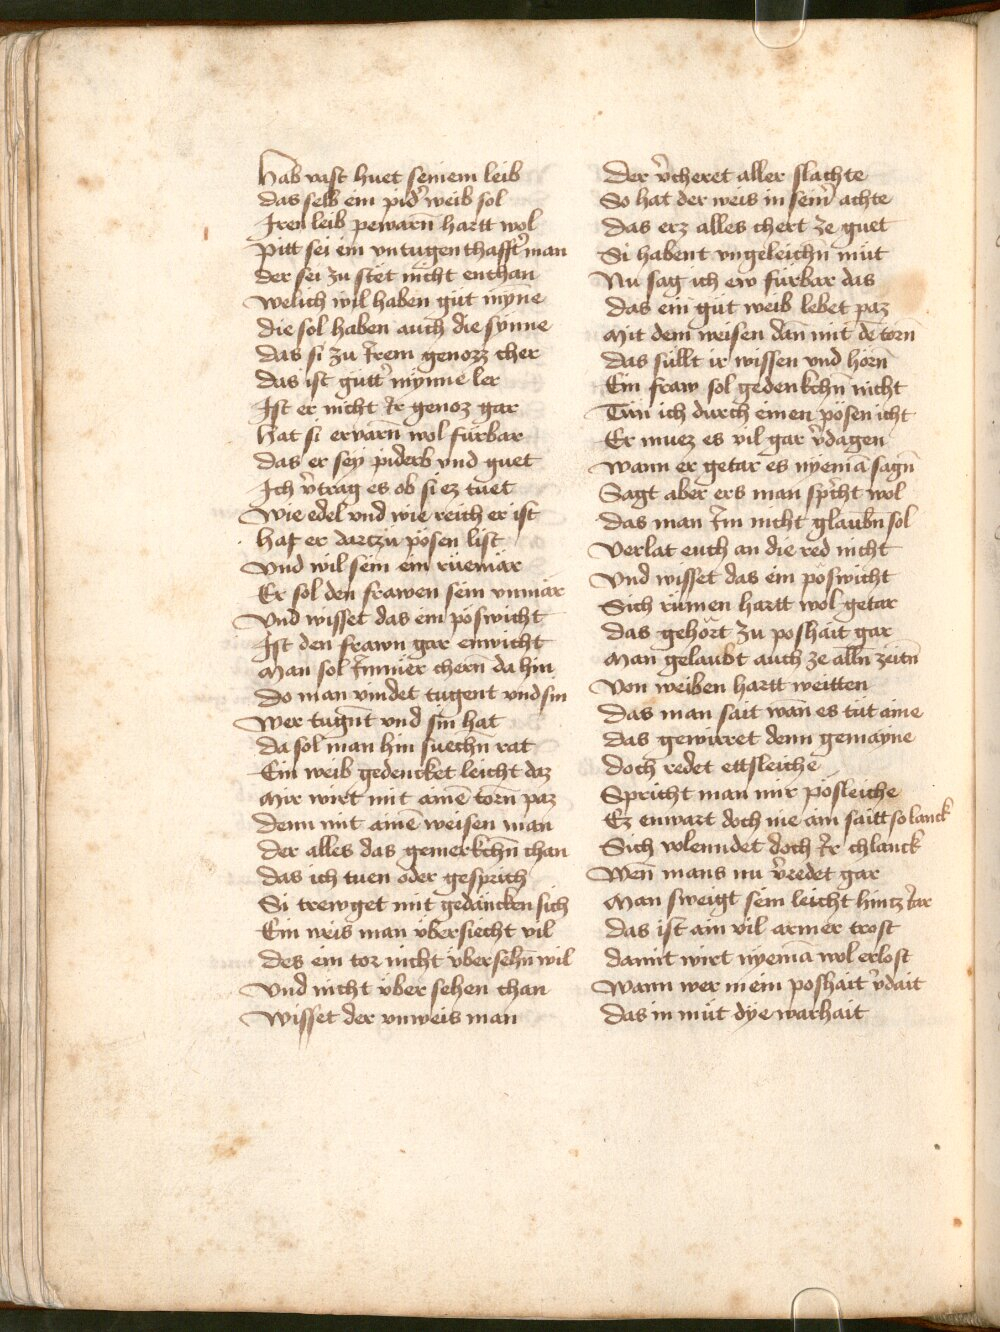 Hab vast huet seinem leib
das selb ein pid̉ weib sol
Iren leib pewarn̄ hartt wol
Pitt sei ein vntugenthafft̉ man
der sei zu stet nicht enthan
welich wil haben gůt myn̄e
die sol haben auch die synne
das si zu Irem genozz cher
das ist gůtt̉ mynne ler
Ist er nicht Ir genoz gar
hat si ervarn̄ wol fürbar
das er sey piderb vnd guet
Ich v̉trag es ob si ez tuet
Wie edel vnd wie reich er ist
hat er dartzů pösen list
Vnd wil sein ein rüemär
Er sol den frawen sein vnmär
Vnd wisset das ein pöswicht
Ist den frawn gar enwicht
Man sol Immer chern̄ da hin
Do man vindet tugent vnd sin
Wer tugn̄t vnd sin hat
da sol man hin suechn̄ rat
Ein weib gedencket leicht daz
Mir wirt mit ainē torn̄ paz
Denn mit ainē weisen man
der alles das gemerkchn̄ chan
das ich tuen oder gesprich
Si trewget mit gedäncken sich
Ein weis man vbersiecht vil
des ein tor nicht vbersehn̄ wil
Vnd nicht vber sehen chan
Wisset der vnweis man
der v̉cheret aller slachte
So hat der weis in sein̉ achte
das erz alles chert ze guet
Si habent vngeleichn̄ můt
Nu sag ich ew fürbar das
das ein gůt weib lebet paz
Mit dem weisen dan̄ mit dē torn
das süllt ir wissen vnd hörn̄
Ein fraw sol gedenkchn̄ nicht
Tůn ich durch einen pösen icht
Er muez es vil gar v̉dagen
wann er getar es nyemā sagn̄
Sagt aber ers man sp̉icht wol
das man Im nicht glaubn̄ sol
Verlat euch an die red nicht
Vnd wisset das ein pöswicht
Sich rümen hartt wol getar
das gehört zu poshait gar
Man gelaubt auch ze alln̄ zeitn̄
Von weiben hartt weitten
Das man sait wan̄ es tůt aine
das gewirret denn gemayne
Doch redet ettsleiche
Spricht man mir pösleiche
Ez enwart doch nie ain saitt so lanck
Sich volenndet doch Ir chlanck
Wen̄ mans nu v̉redet gar
Man sweigt sein leicht hintz Iar
das ist ain vil armer trost
damit wirt nyemā wol erlost
Wann wer mein poshait v̉dait
das in můt dye warhait